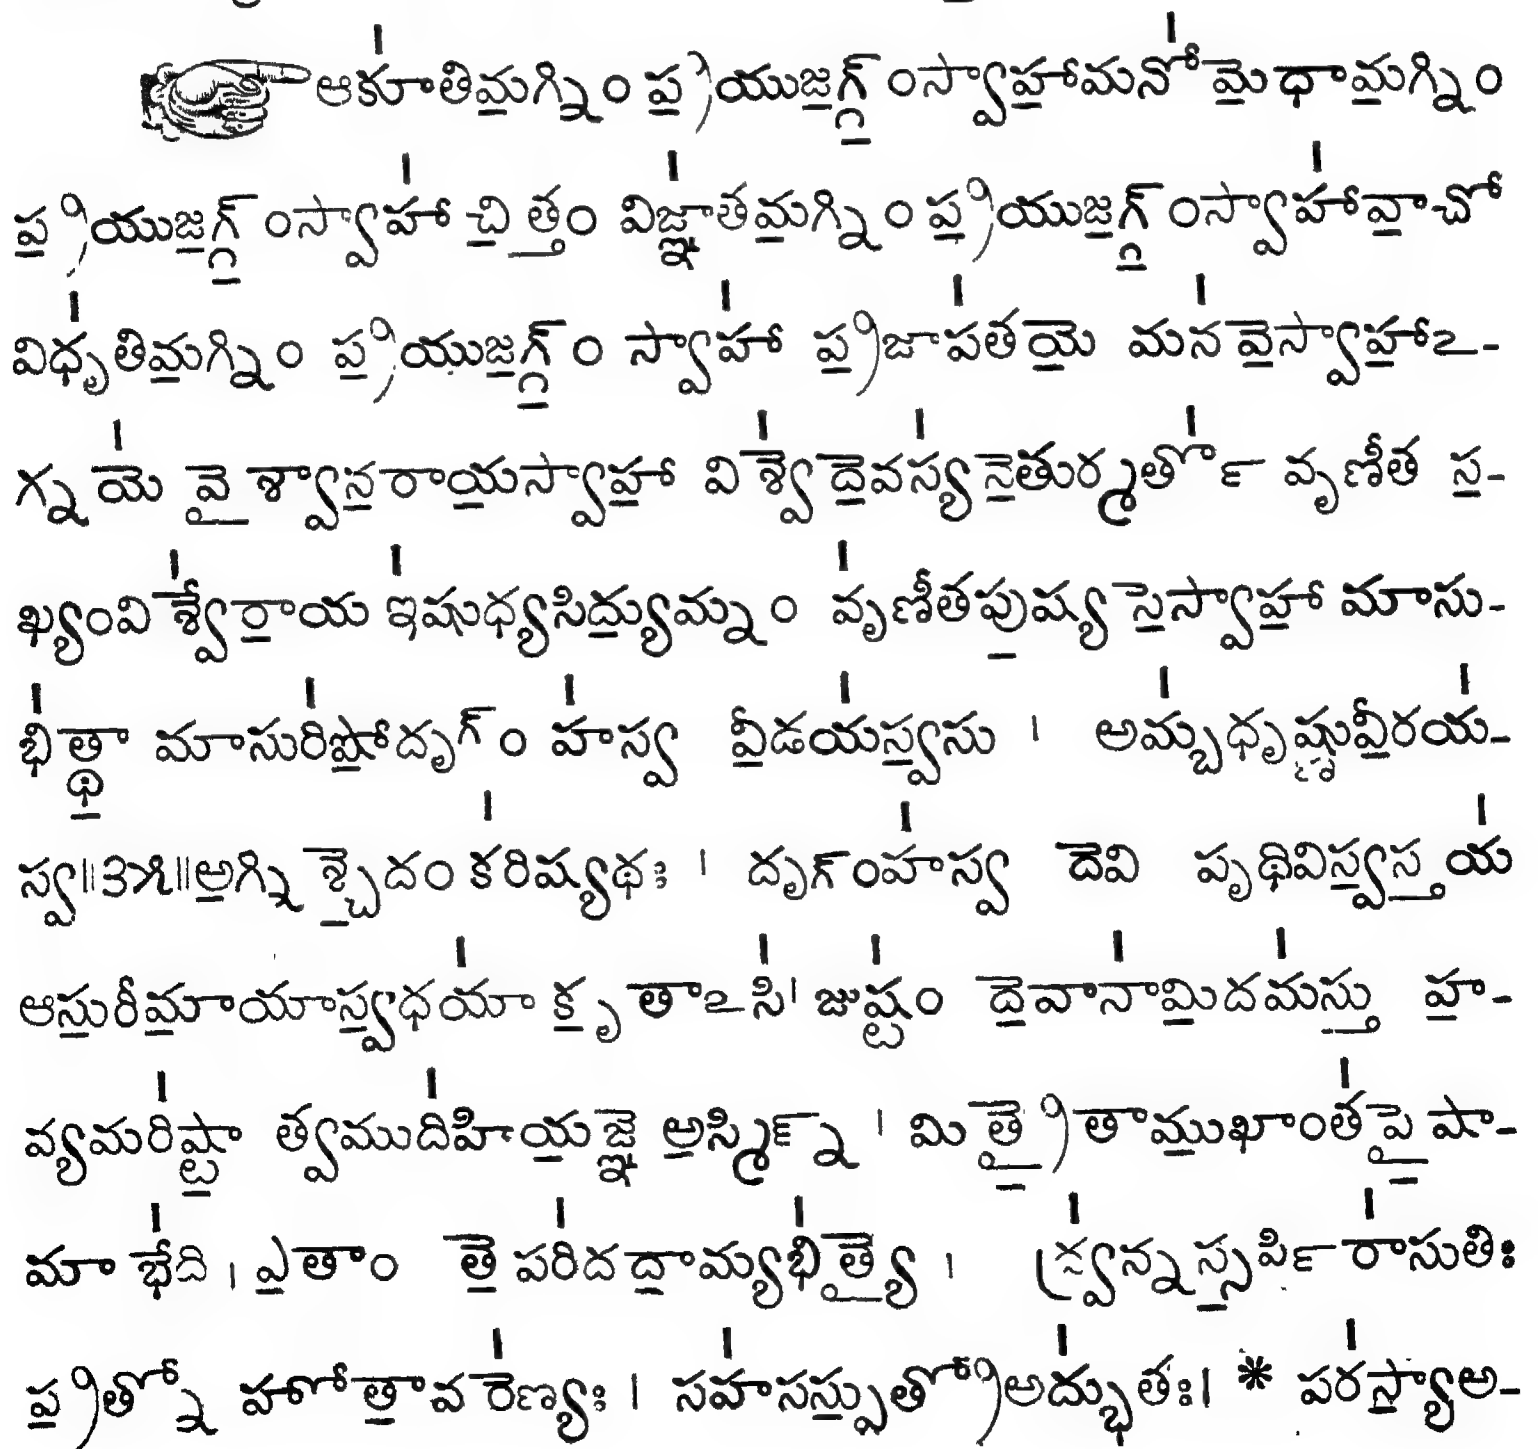 ఆకూ॑తిమ॒గ్నిం ప్ర॒యుజ॒గ్గ్॒ంస్వాహా॒మనో॑మే॒ధామ॒గ్నిం
ప్ర॒యుజ॒గ్గ్॒ంస్వాహా॑ చి॒త్తం॒ విజ్ఞా॑తమ॒గ్నిం ప్ర॒యుజ॒గ్గ్॒ంస్వాహా॑వా॒చో
విధృ॑తిమ॒గ్నిం ప్ర॒యుజ॒గ్గ్॒ం స్వాహా॑ ప్ర॒జాప॑తయే॒ మన॑వే॒స్వాహా॒ఽ-
గ్నయే॑ వై॒శ్వాన॒రాయ॒స్వాహా॒ విశ్వే॑దే॒వస్య॑నే॒తుర్మర్తో॑ వృణీత స॒-
ఖ్యంవిశ్వే॑రా॒య ఇ॑షుధ్యసిద్యు॒మ్నం వృ॑ణీతపు॒ష్యసే॒స్వాహా॒ మాసు-
భి॑త్థా॒ మాసురి॑షో॒దృగ్ం హ॑స్వ వీ॒డయ॑స్వ॒సు । అమ్బ॑ధృష్ణువీ॒రయ॑-
స్వ॥౩౫॥అ॒గ్నిశ్చే॒దం క॑రిష్యథః । దృగ్ంహ॑స్వ దేవి పృథివిస్వ॒స్తయ॑
ఆసు॒రీమా॒యాస్వ॒ధయా॑ కృ॒తాఽసి॑। జుష్టం॑ దే॒వానా॑మి॒దమ॑స్తు॒ హ॒-
వ్యమరి॑ష్టా॒ త్వముది॑హియ॒జ్ఞే అ॒స్మిర్న్॒ । మిత్రై॒తాము॒ఖాంత॑పై॒షా-
మా భే॑ది । ఏ॒తాం తే॒ పరి॑దదా॒మ్యభి॑త్యై॒ । ద్ర్వన్న॑స్స॒ర్పిరా॑సుతిః
ప్ర॒త్నో హోతా॒వరే॑ణ్యః । సహ॑సస్పు॒త్రోఅద్భు॑తః। * పర॑స్యా॒అ-